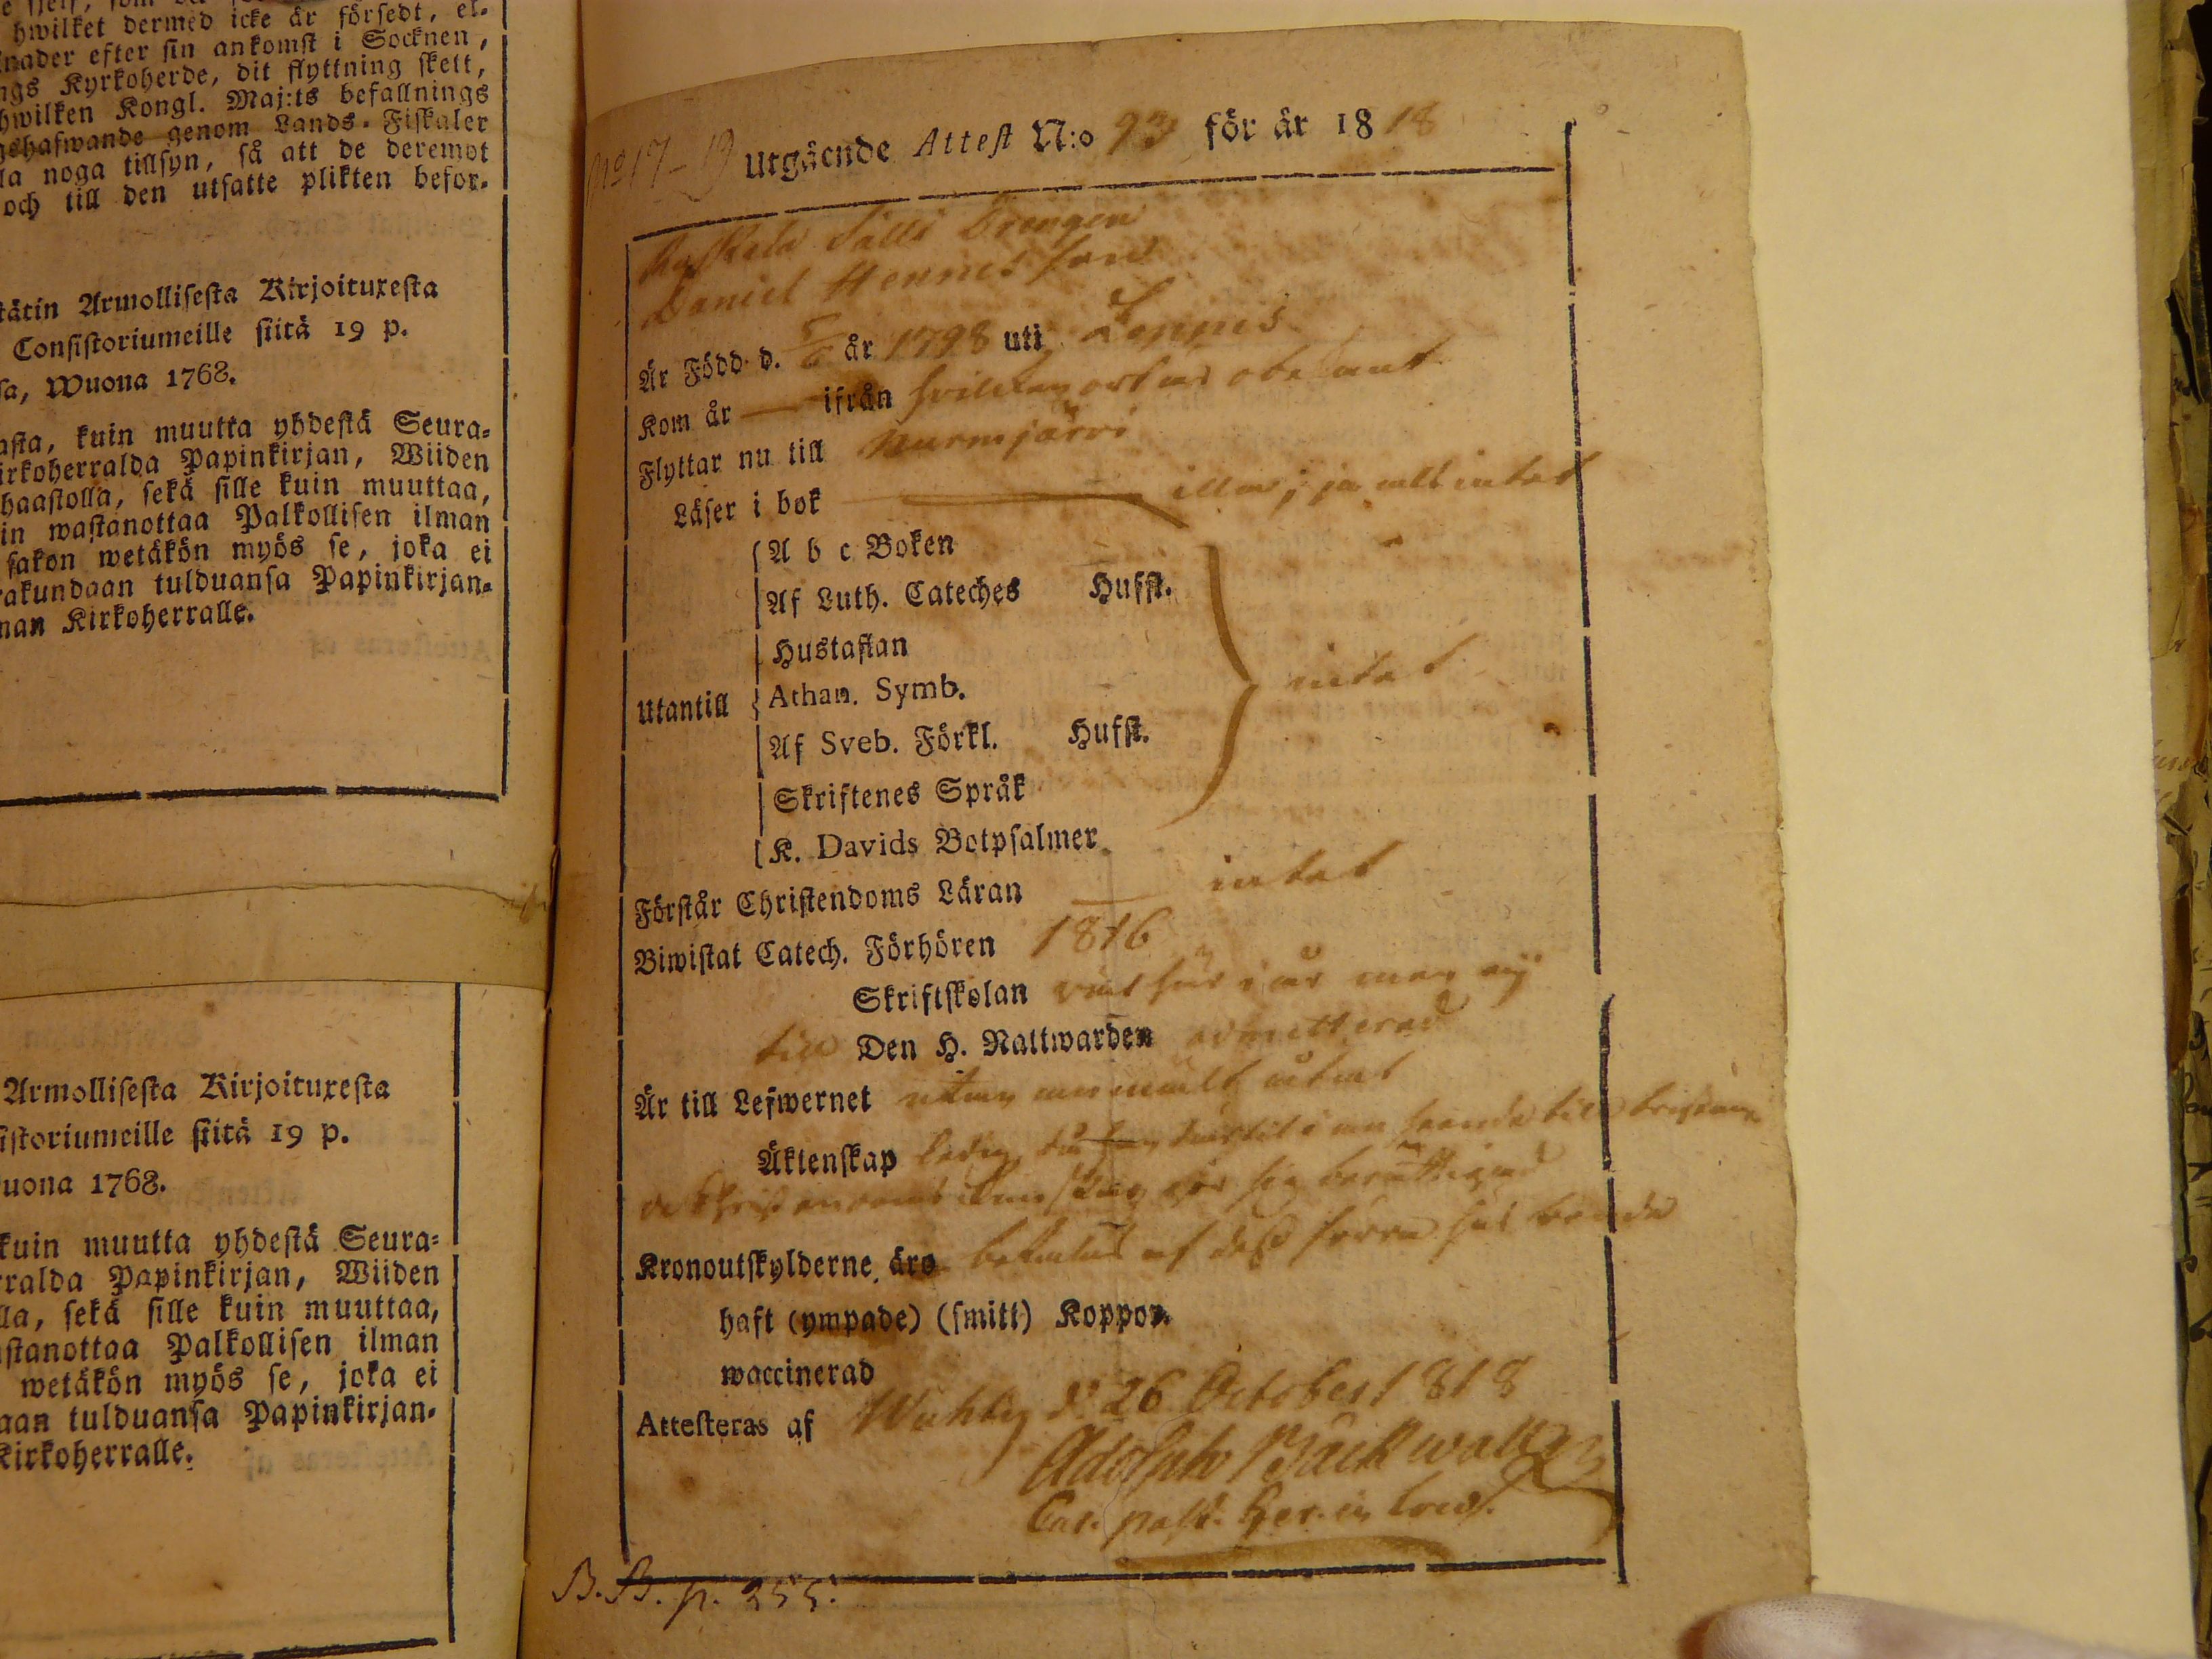 hwilket dermed icke är försedt, el-
nader efter sin ankomst i Socknen,
ngs Kyrkoherde, dit flyttning skett,
hwilken Kongl. Maj:ts befallnings
gshafwande genom Lands-Fiskaler
la noga tillsyn, så att de deremot
och till den utsatte plikten befor-
tätin Armollisesta Kirjoituxesta
Consistoriumeille siitä 19 p.
sa, Wuona 1768.
asta, kuin muutta yhdestä Seura-
irkoherralda Papinkirjan, Wiiden
haastolla, sekä sille kuin muuttaa,
in wastanottaa Palkollisen ilman
sakon wetäkön myös se, joka ei
rakundaan tulduansa Papinkirjan-
nan Kirkoherralle.
Armollisesta Kirjoituxesta
istoriumeille siitä 19 p.
uona 1768.
kuin muutta yhdestä Seura-
rralda Papinkirjan, Wiiden
lla, sekä sille kuin muuttaa,
astanottaa Palkollisen ilman
wetäkön myös se, joka ei
aan tulduansa Papinkirjan-
Kirkoherralle.
No 17-19 Utgående Attest N:o 93 för år 1818
Drengen
Daniel Hennes son
Är Född d. 5/6 år 1798 uti Loppis
Kom år — ifrån hvilken ort är obekant
Flyttar nu till Nurmjärvi
Läser i bok illa, ja alt intet
Utantill
A b c Boken
Af Luth. Cateches Hufst.
Hustaflan
Athan. Symb. intet
Af Sveb. Förkl. Hufst.
Skriftenes Språk
K. Davids Botpsalmer
Förstår Christendoms Läran intet
Biwistat Catech. Förhören 1816
Skriftskolan här i år men ej
till Den H. Nattwarden admitterad
Är till Lefwernet utan anmält
Äktenskap ledig
Kronoutskylderne äro betalad af dess förra hus
haft (ympade) (smitt) Koppor.
waccinerad
Attesteras af Wichtis d. 26 October 1818
Adolph Bäckwall
B.B. p. 255.